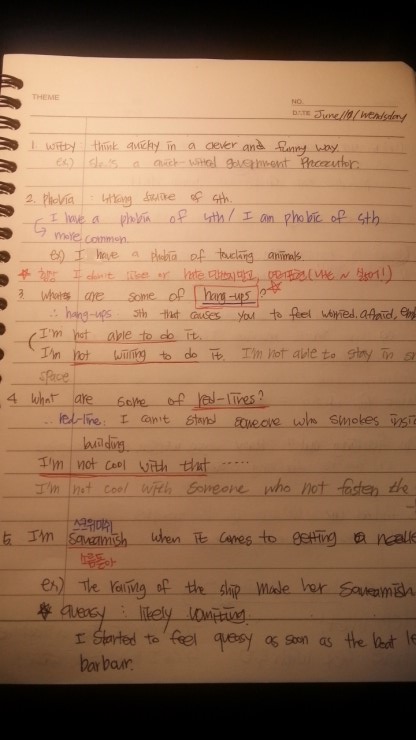 THEME
NO.
DATE June/19/Wendsday
1. witty think quickly in a clever and funny way.
ex) she is a quick-witted government Prosecutor.
2. Phobia : strong dislike of sth.
I have a phobia of sth / I am phobic of sth
more common.
ex) I have a phobia of touching animals.
I don't like or hate
3. whates are some of hang-ups?
∴ hang-ups sth that causes you to feel worried, afraid,
I'm not able to do it.
I'm not willing to do it. I'm not able to stay in
space
4 what are some of red-lines?
red-line. I can't stand someone who smokes
building.
I'm not cool with that .....
I'm not cool with someone who not fasten the
스퀴미쉬
5 I'm squeamish when it comes to getting a
소름돋아
ex) The rolling of the ship made her squeamish
queasy : likely vomiting.
I started to feel queasy as soon as the boat
barbour.